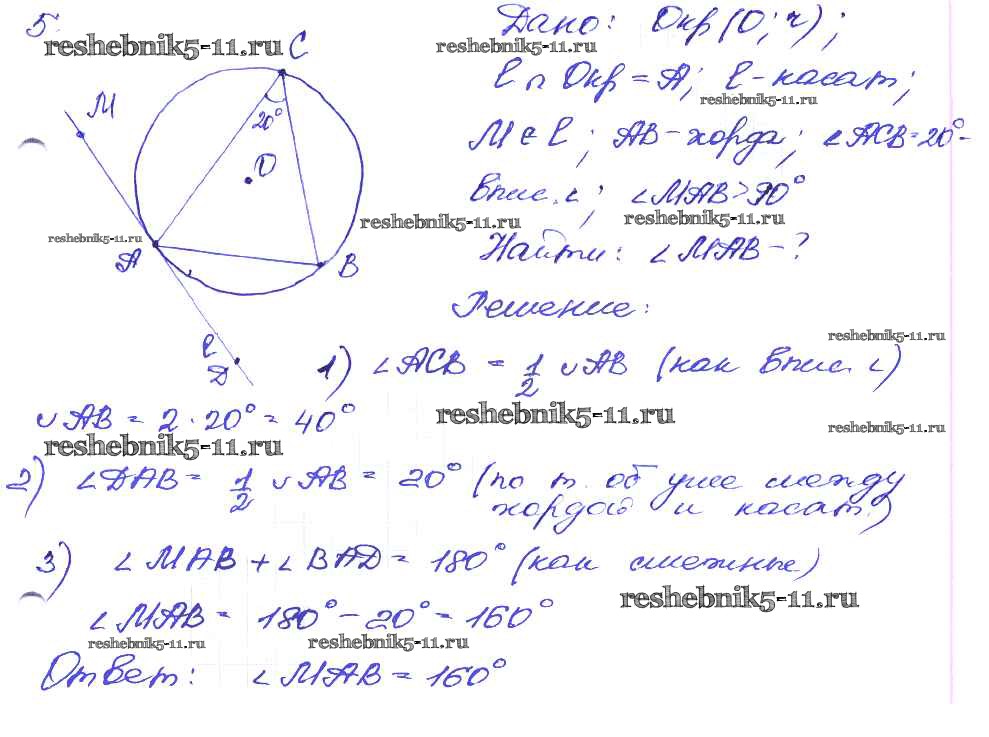 5.
reshebnik5-11.ru
C
Дано: Окр(O; r);
reshebnik5-11.ru
l ∩ Окр = A; l - касат;
reshebnik5-11.ru
M
20°
M ∈ l; AB - хорда; ∠ACB = 20° -
O
впис. ∠; ∠MAB > 90°
reshebnik5-11.ru
reshebnik5-11.ru
reshebnik5-11.ru
A
B
Найти: ∠MAB - ?
Решение:
reshebnik5-11.ru
l
D
1) ∠ACB = 1/2 ∪AB (как впис. ∠)
∪AB = 2 · 20° = 40°
reshebnik5-11.ru
reshebnik5-11.ru
reshebnik5-11.ru
2) ∠DAB = 1/2 ∪AB = 20° (по т. об угле между
хордой и касат.)
3) ∠MAB + ∠BAD = 180° (как смежные)
reshebnik5-11.ru
∠MAB = 180° - 20° = 160°
reshebnik5-11.ru
reshebnik5-11.ru
Ответ: ∠MAB = 160°